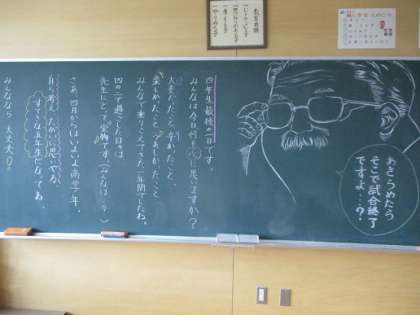 四年生最後の一日です。
みんなは今日何を思いますか？
大変だったこと、辛かったこと、
楽しかったこと、うれしかったこと
みんなで乗りこえてきた一年間でしたね。
四の一で過ごした日々は
先生にとって宝物です。（みんなは…？）
さあ、四月からはいよいよ高学年。
自ら考え、たがいに思いやる、
すてきな五年生になってね。
みんななら、大丈夫！
あきらめたら
そこで試合終了
ですよ…？
教育目標